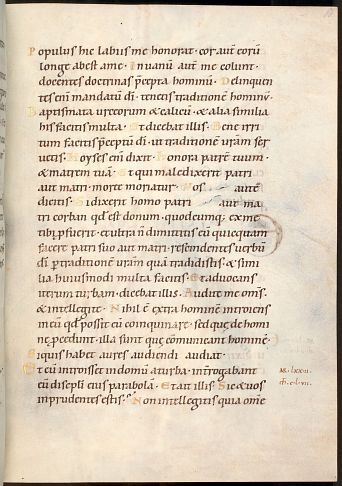 Populus hic labiis me honorat · cor aut̄ eorū
longe abest a me · In uanū aut̄ me colunt ·
docentes doctrinas p̄cepta hominū · Relinquen
tes eni mandatū dī · tenetis traditionē hominū ·
Baptismata urceorum & calicū · & alia similia
his facitis multa · Et dicebat illis · Bene irri
tum facitis p̄ceptū dī · ut traditionē uram̄ ser
uetis · Moyses eni dixit · Honora patrē tuum ·
& matrem tuā · Et qui maledixerit patri
aut matri · morte moriatur · Vos autē
dicitis · Si dixerit homo patri aut ma
tri corban qd̄ est donum · quodcumq; ex me
tibi pfuerit · et ultra n̄ dimittitis eū quicquam
facere patri suo aut matri · rescindentes uerbū
dī p traditionē uram̄ quā tradidistis · & simi
lia huiusmodi multa facitis · Et aduocans
iterum turbam · dicebat illis · Audite me om̄s ·
& intellegite · Nihil ē extra hominē introiens
in eū qd̄ possit eū coinquinare · sed quę de homi
ne pcedunt · illa sunt quę cōmunicant hominē ·
Siquis habet aures audiendi audiat ·
Et cū introisset in domū a turba · int̄rogabant
eū discipli eius parabolā · Et ait illis · Sic & uos
inprudentes estis · Non intellegitis quia omē